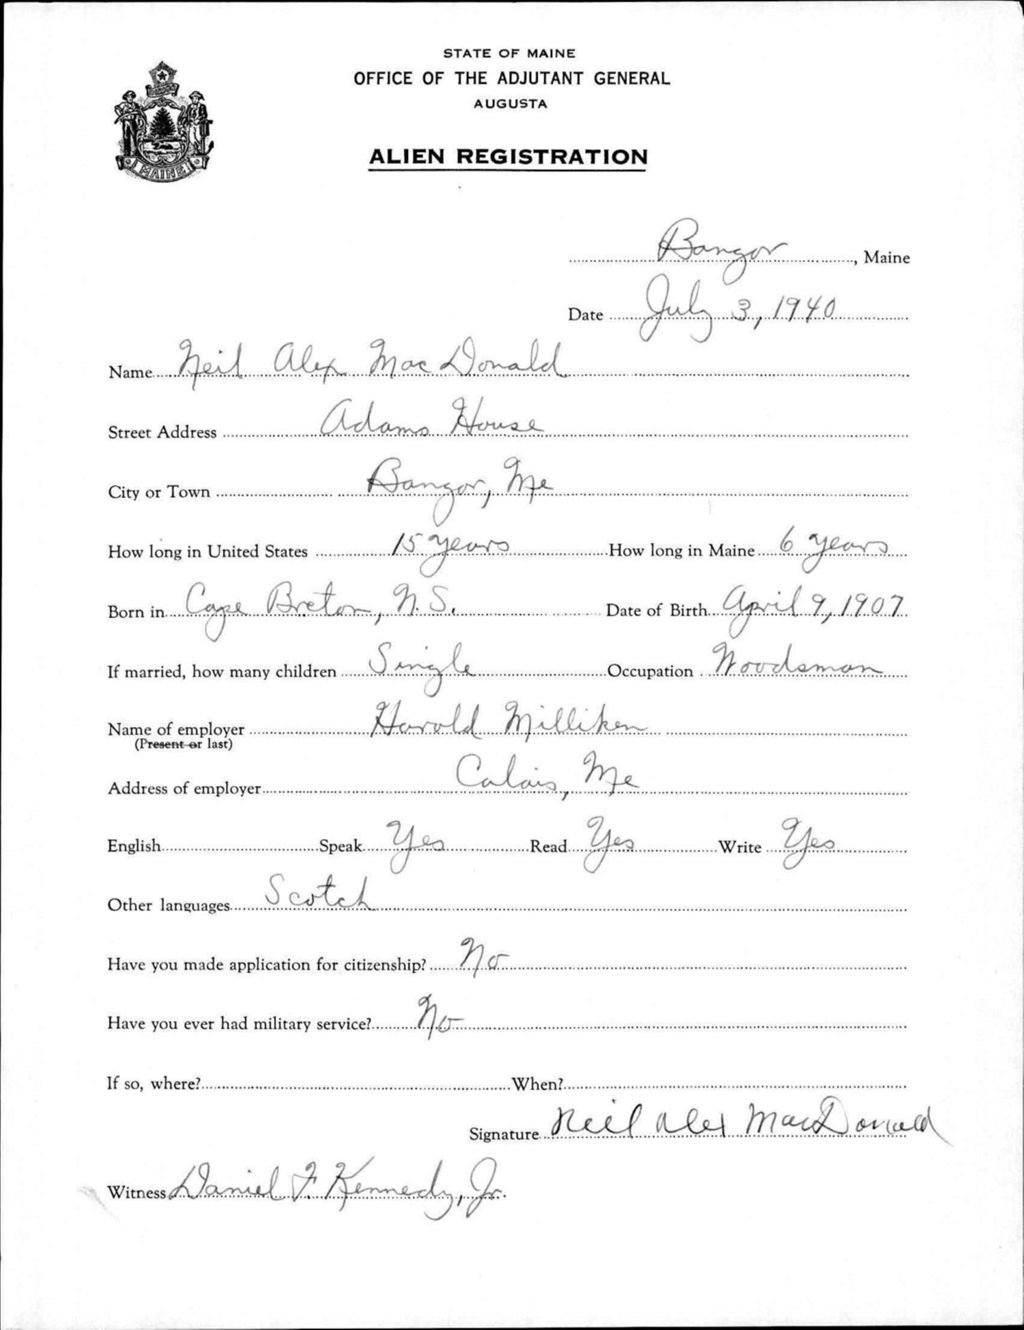 STATE OF MAINE
OFFICE OF THE ADJUTANT GENERAL
AUGUSTA
ALIEN REGISTRATION
MAINE
Bangor, Maine
Date July 3, 1940
Name Neil Alex MacDonald
Street Address Adams House
City or Town Bangor, Me
How long in United States 15 years How long in Maine 6 years
Born in Cape Breton, N.S. Date of Birth April 9, 1907
If married, how many children Single Occupation Woodsman
Name of employer Harold Milliken
(Present or last)
Address of employer Calais, Me
English Speak Yes Read Yes Write Yes
Other languages Scotch
Have you made application for citizenship? No
Have you ever had military service? No
If so, where? When?
Signature Neil Alex MacDonald
Witness Daniel F. Kennedy, Jr.